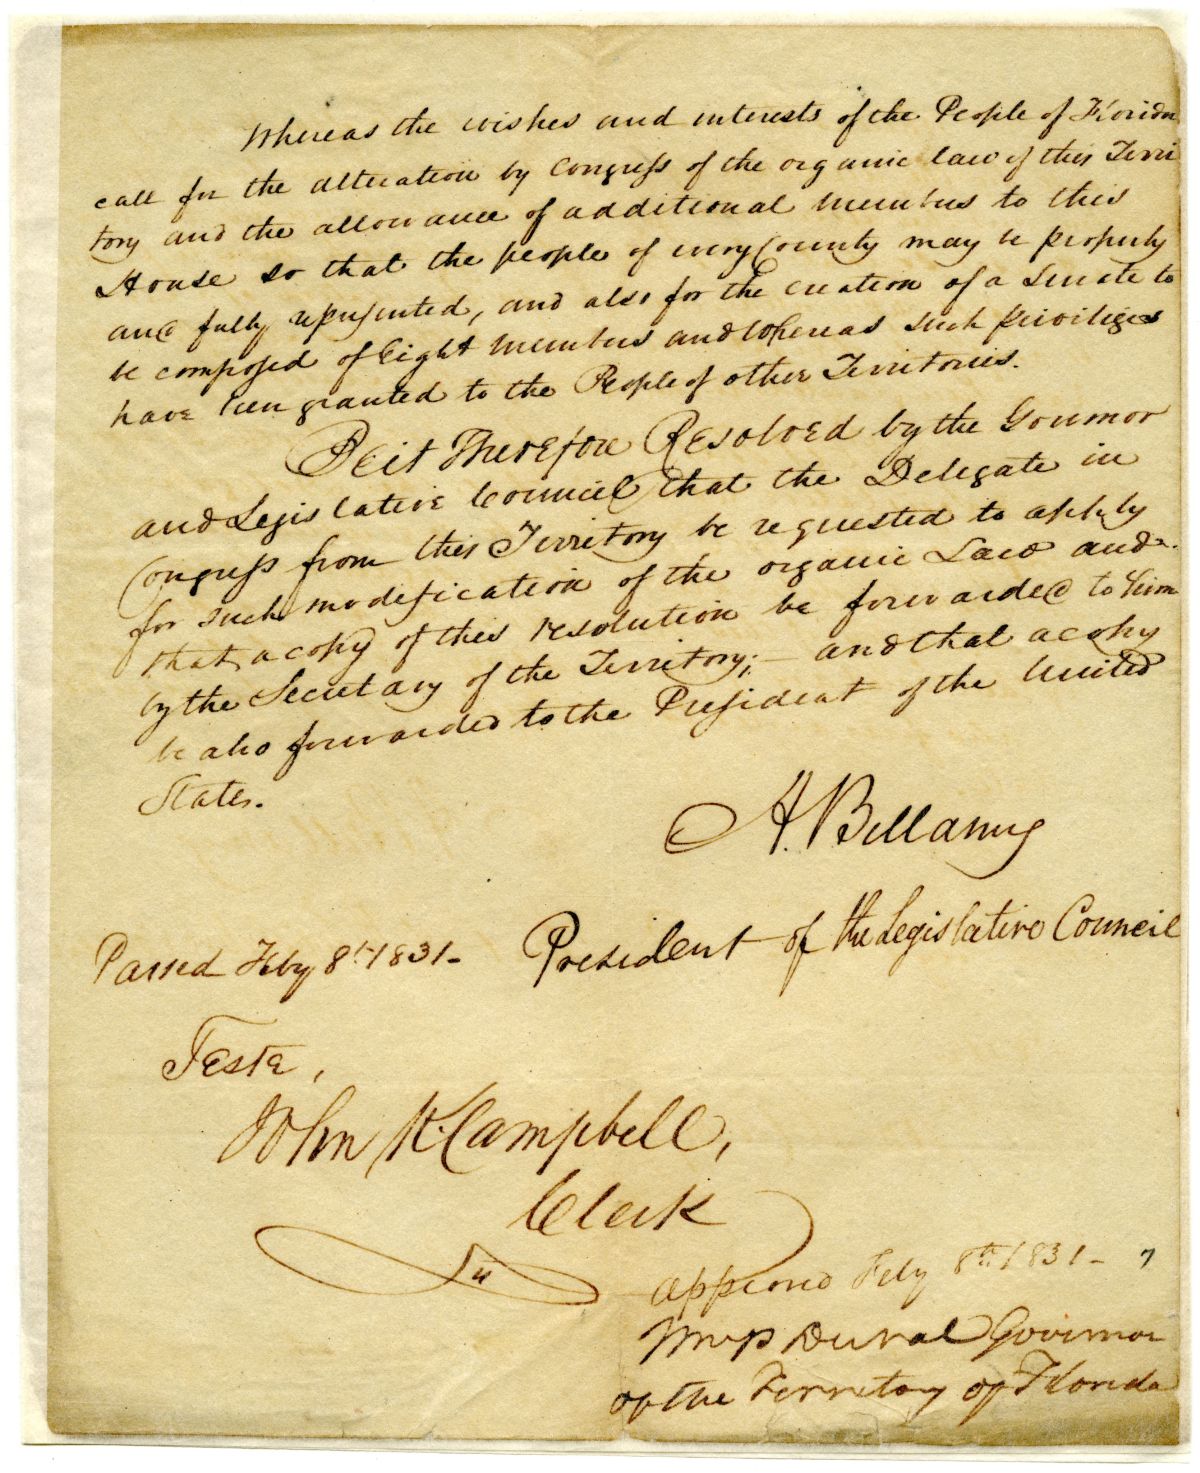 Whereas the wishes and interests of the People of Florida
call for the alteration by Congress of the organic law of this Terri
tory and the allowance of additional members to this
House so that the people of every County may be properly
and fully represented, and also for the creation of a Senate to
be composed of Eight members and Whereas such privileges
have been granted to the People of other Territories.
Be it Therefore Resolved by the Governor
and Legislative Council that the Delegate in
Congress from this Territory be requested to apply
for such modification of the organic Law and
that a copy of this resolution be forwarded to him
by the Secretary of the Territory; — and that a copy
be also forwarded to the President of the United
States.
A. Bellamy
President of the Legislative Council
Passed Feby 8th 1831-
Teste,
John K. Campbell,
Clerk
approved Feby 8th 1831- 7
Wm P Duval Governor
of the Territory of Florida